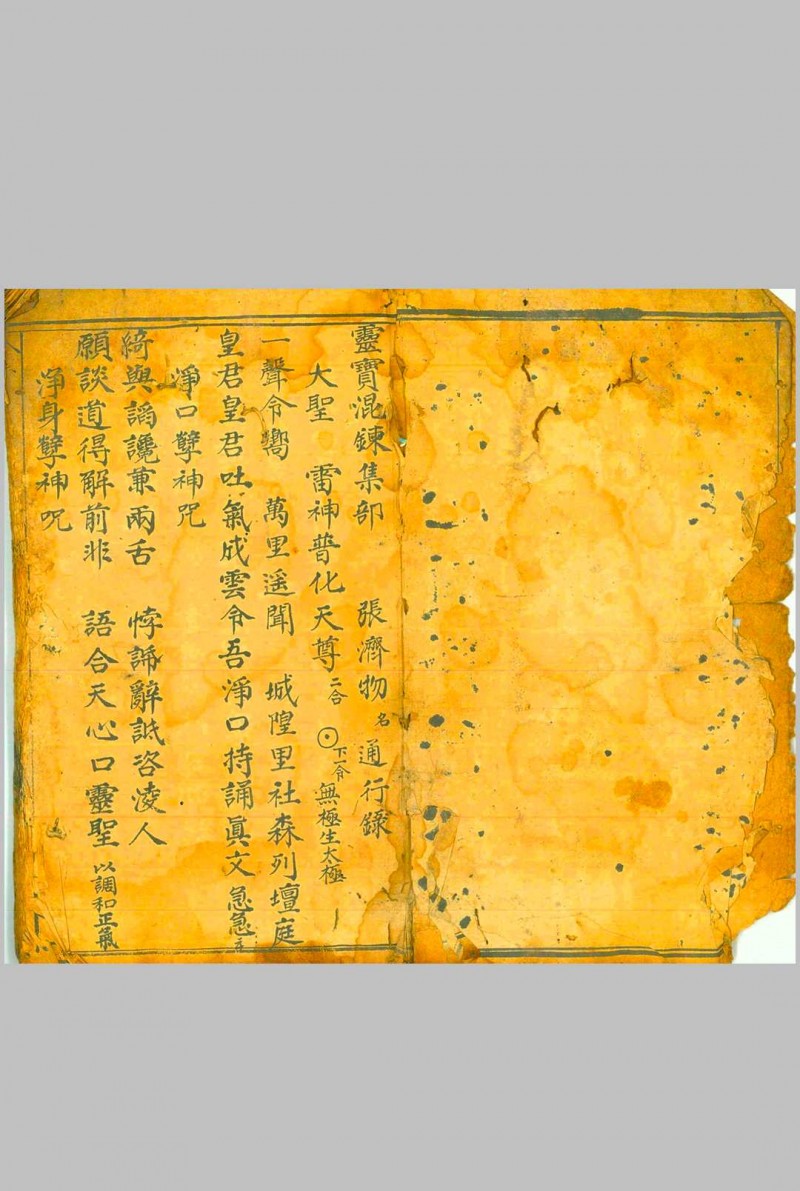 靈寶混鍊集部 張濟物名通行錄
大聖 雷神普化天尊二合 下一令 無極生太極
一聲令嚮 萬里遥聞 城隍里社森列壇庭
皇君皇君吐氣成雲令吾淨口持誦眞文急急
淨口孽神咒
綺與謟讒兼兩舌 悖誦辭訿咨淩人
願談道得解前非 語合天心口靈聖 以調和正氣
淨身孽神咒